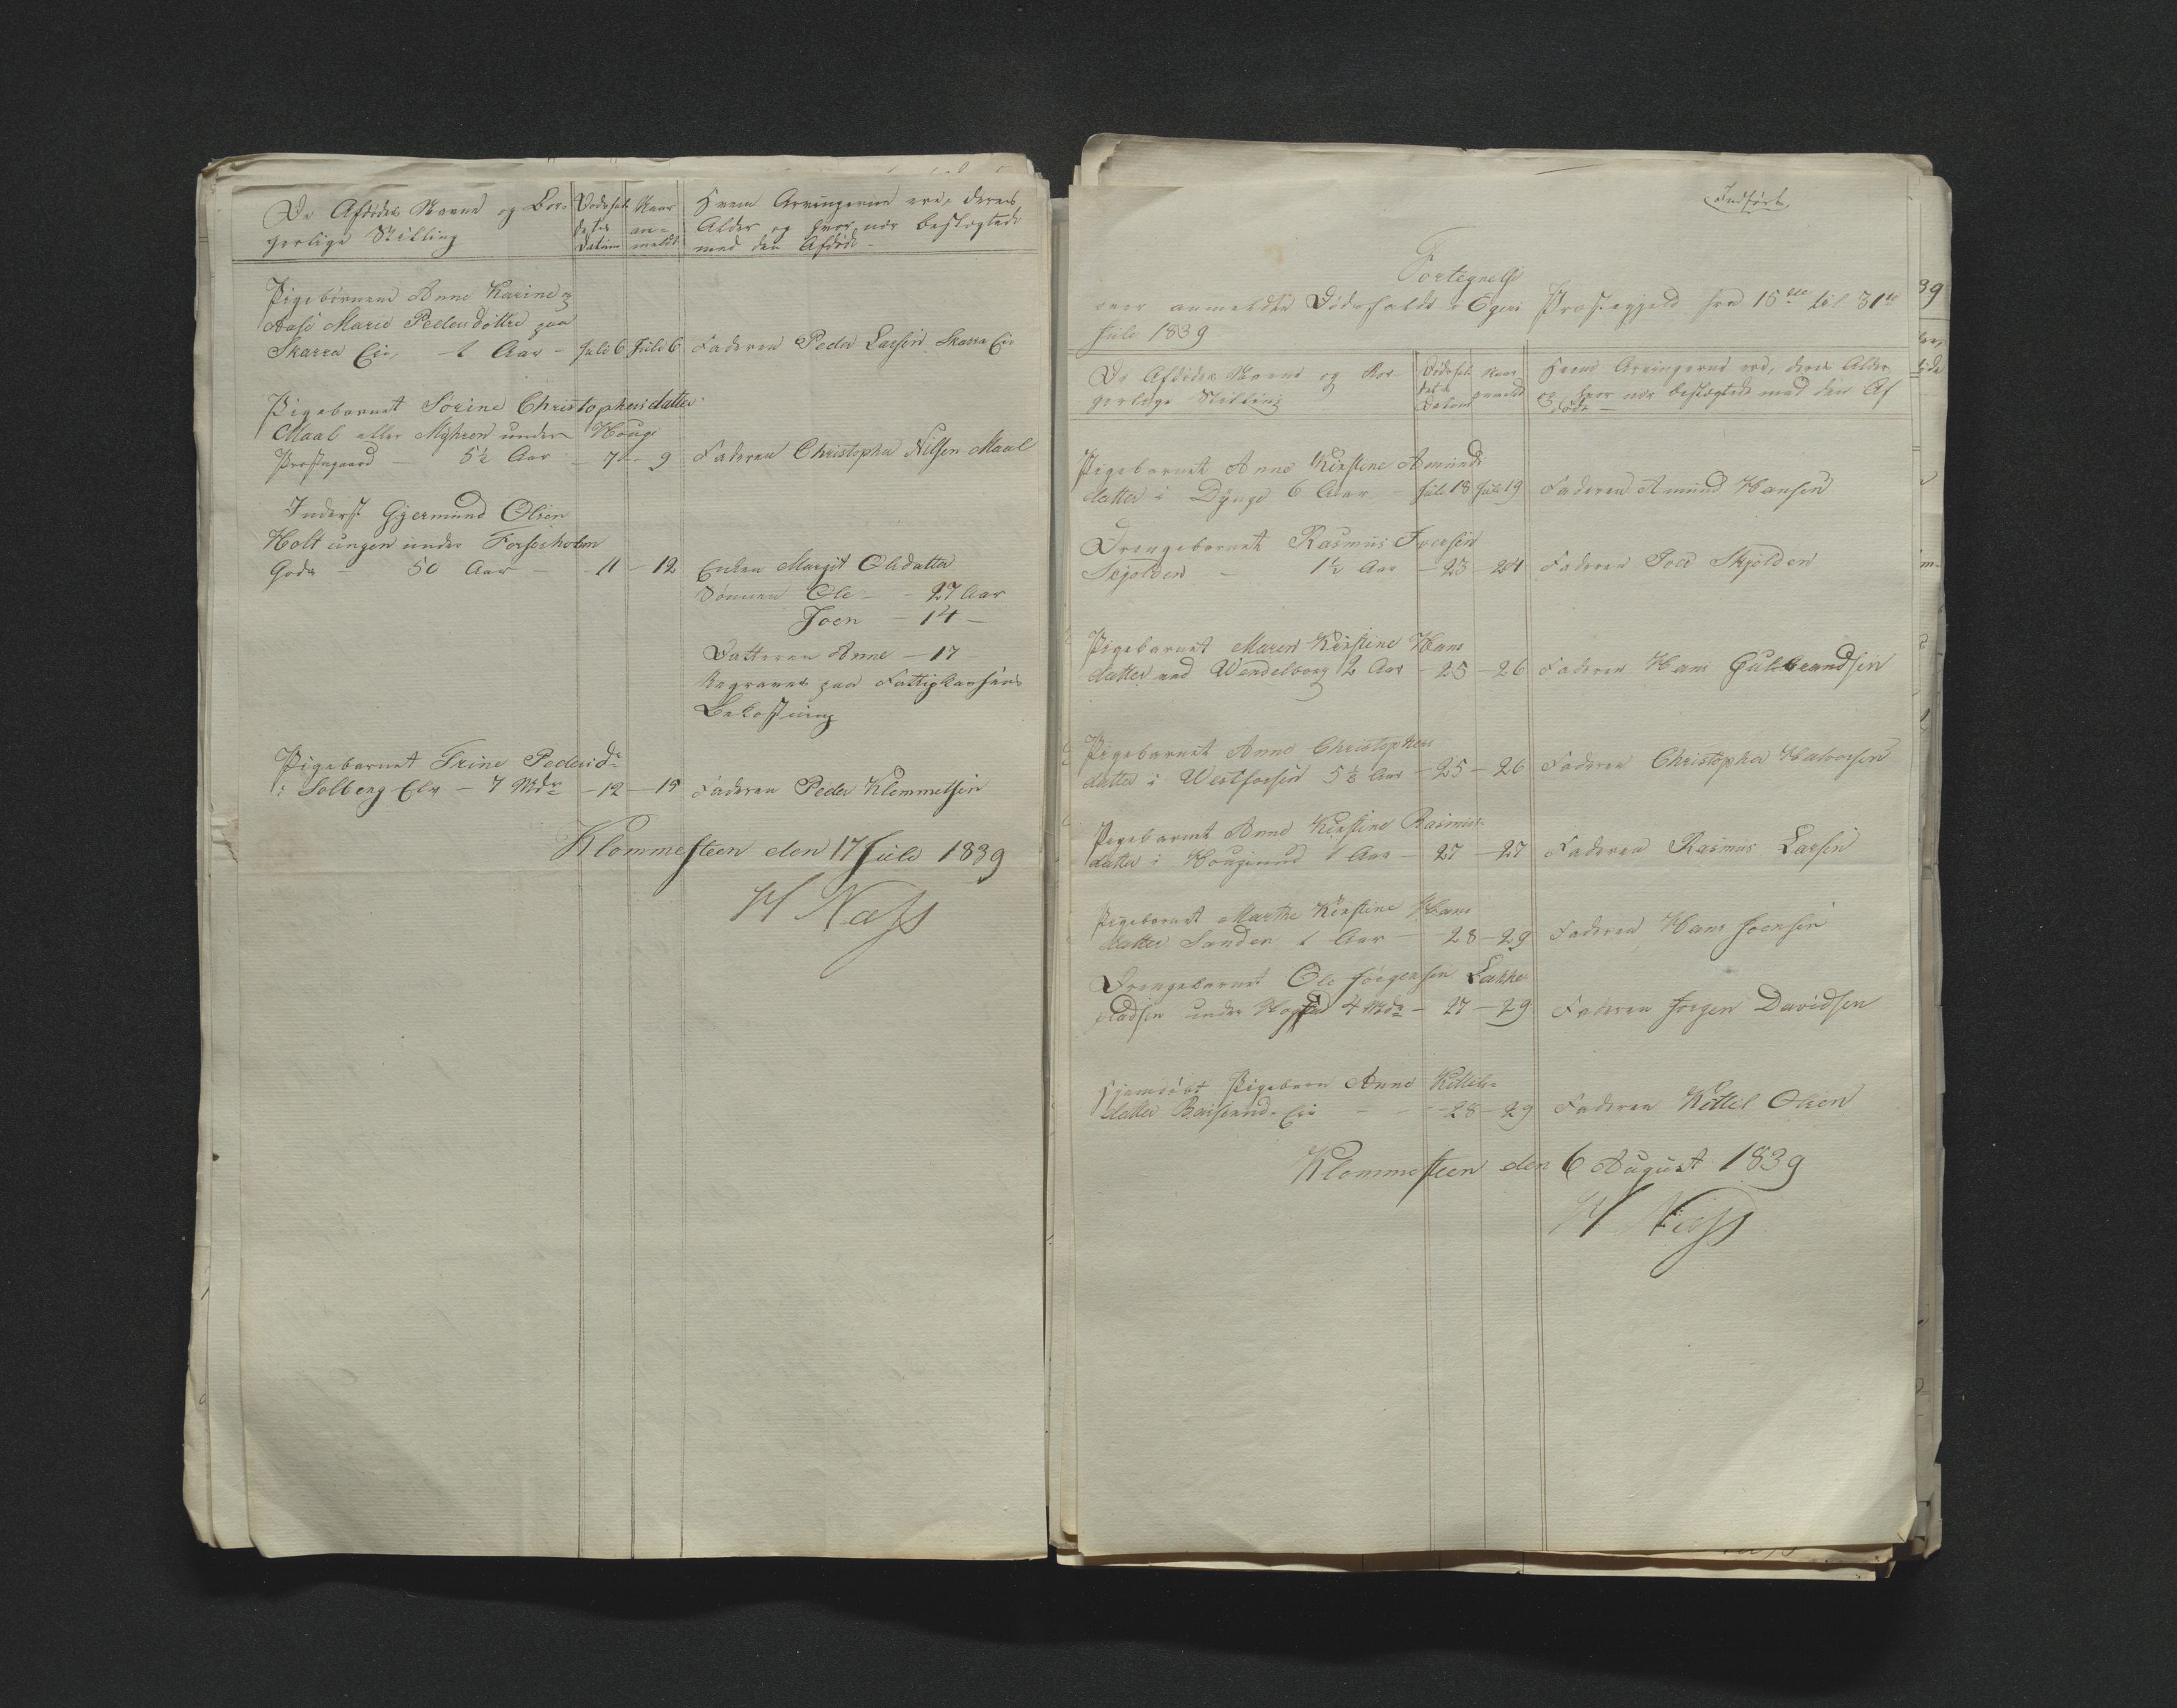 De Afdødes Navne og Bor-
gerlige Stilling
Dødsfal-
dets
Datum
Naar
an-
meldt
Hvem Arvingerne ere, deres
Alder og hvor nær beslægtede
med den Afdøde -
Pigebørnene Anne Karine og
Aase Marie Pedersdøttre paa
Skarra Eie, - 1 Aar - Juli 6 Juli 6 Faderen Peder Larsen Skarra Eie
Pigebarnet Sørine Christophersdatter
Maal eller Myhren under Houge
Præstegaard - 5½ Aar - 7 - 9 Faderen Christopher Nilsen Maal
Inderst Gjermund Olsen
Holtungen under Fossesholm
Gods - 50 Aar - 11 - 12 Enken Margit Olsdatter
Sønnen Ole - 27 Aar
Joen - 14 -
Datteren Anne - 17 -
Begraves paa Fattigkassens
Bekostning
Pigebarnet Trine Pedersdr
i Solberg Elv - 7 Mdr - 12 - 15 Faderen Peder Klemmetsen
Klommesteen den 17 Juli 1839
H Næss
Indført
Fortegnelse
over anmeldte Dødsfalde i Egers Præstegjeld fra 15de til 31te
Juli 1839
De Afdødes Navne og Bor-
gerlige Stilling
Dødsfal-
dets
Datum
Naar
anmeldt
Hvem Arvingerne ere, deres Alder
og hvor nær beslægtede med den Af
døde -
Pigebarnet Anne Kirstine Amunds
datter i Dynge 6 Aar - Juli 18 Juli 19 Faderen Amund Hansen
Drengebarnet Rasmus Iversen
Skjolden - 1½ Aar - 23 - 24 Faderen Iver Skjolden
Pigebarnet Maren Kirstine Hans
datter ved Wendelborg 2 Aar - 25 - 26 Faderen Hans Gulbrandsen
Pigebarnet Anne Christophers
datter i Westfossen 5½ Aar - 25 - 26 Faderen Christopher Halvorsen
Pigebarnet Anne Kirstine Rasmus-
datter i Hougsund 1 Aar - 27 - 27 Faderen Rasmus Larsen
Pigebarnet Marthe Kirstine Hans
datter Sanden 1 Aar - 28 - 29 Faderen Hans Joensen
Drengebarnet Ole Jørgensen Lakke
pladsen under 4 Mdr - 27 - 29 Faderen Jørgen Davidsen
Hjemdøbt Pigebarn Anne Kittils-
datter Eie - - - 28 - 29 Faderen Kittil Olsen
Klommesteen den 6 August 1839
H Næss